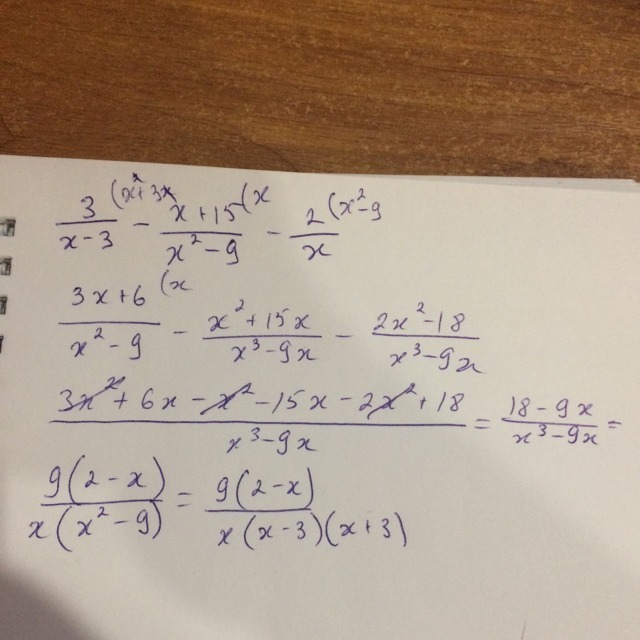 3/(x-3) (x²+3x - (x+15)/(x²-9) (x - 2/x (x²-9
(3x+6)/(x²-9) (x - (x²+15x)/(x³-9x) - (2x²-18)/(x³-9x)
(3x²+6x-x²-15x-2x²+18)/(x³-9x) = (18-9x)/(x³-9x) =
9(2-x)/(x(x²-9)) = 9(2-x)/(x(x-3)(x+3))